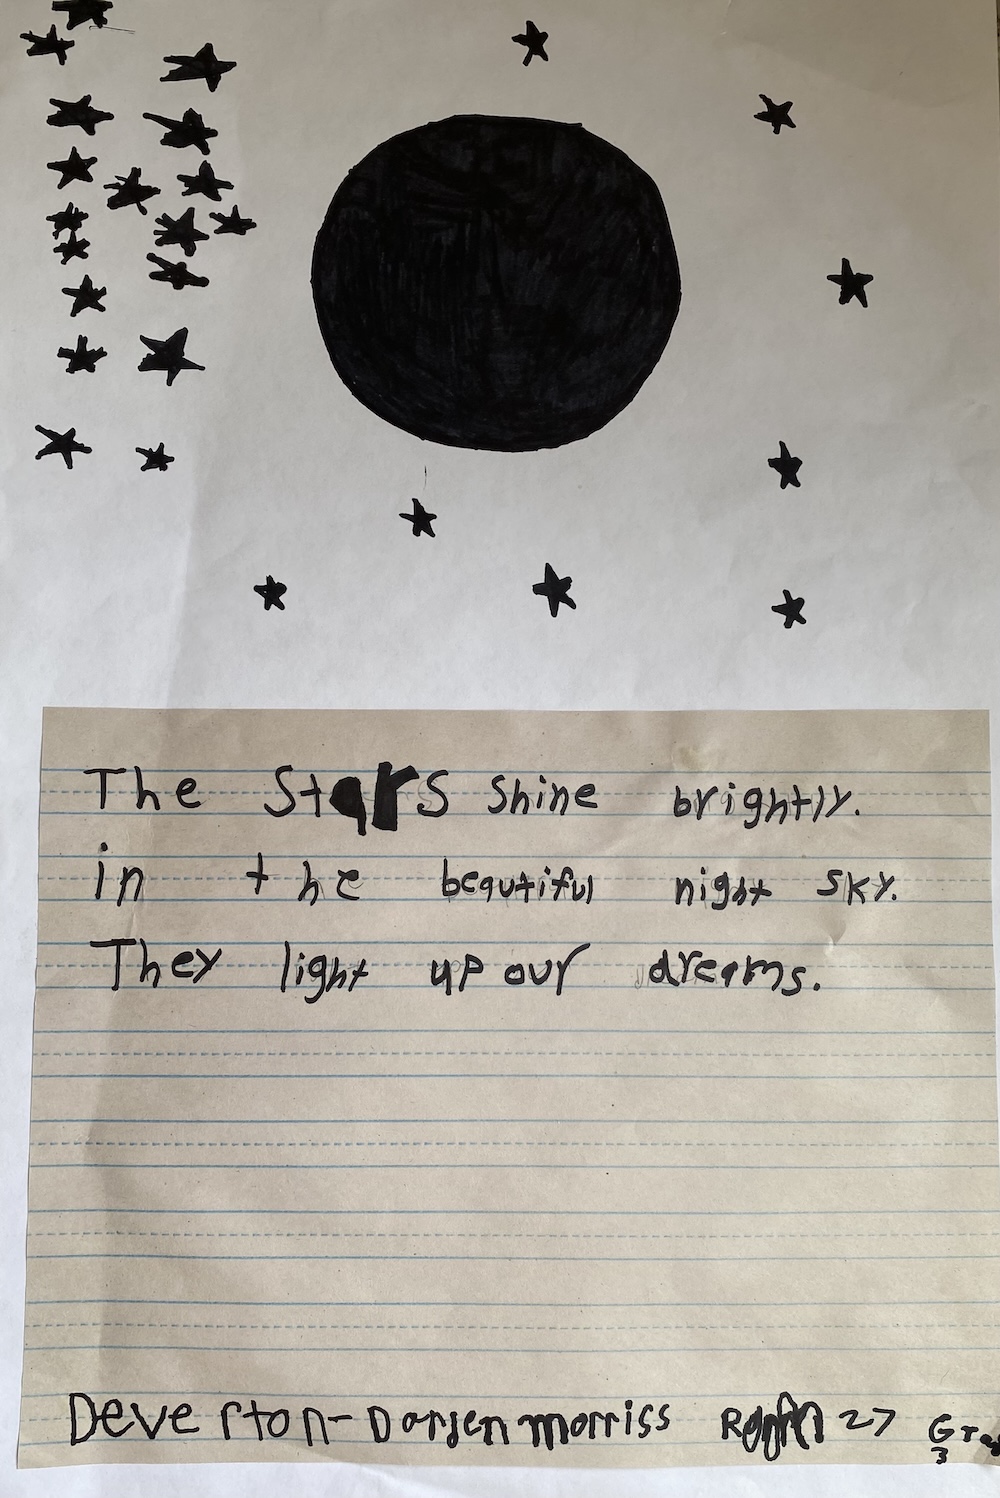 The Stars shine brightly.
in the beautiful night sky.
They light up our dreams.
Deverton-Dorjen morriss 27 Gra
3